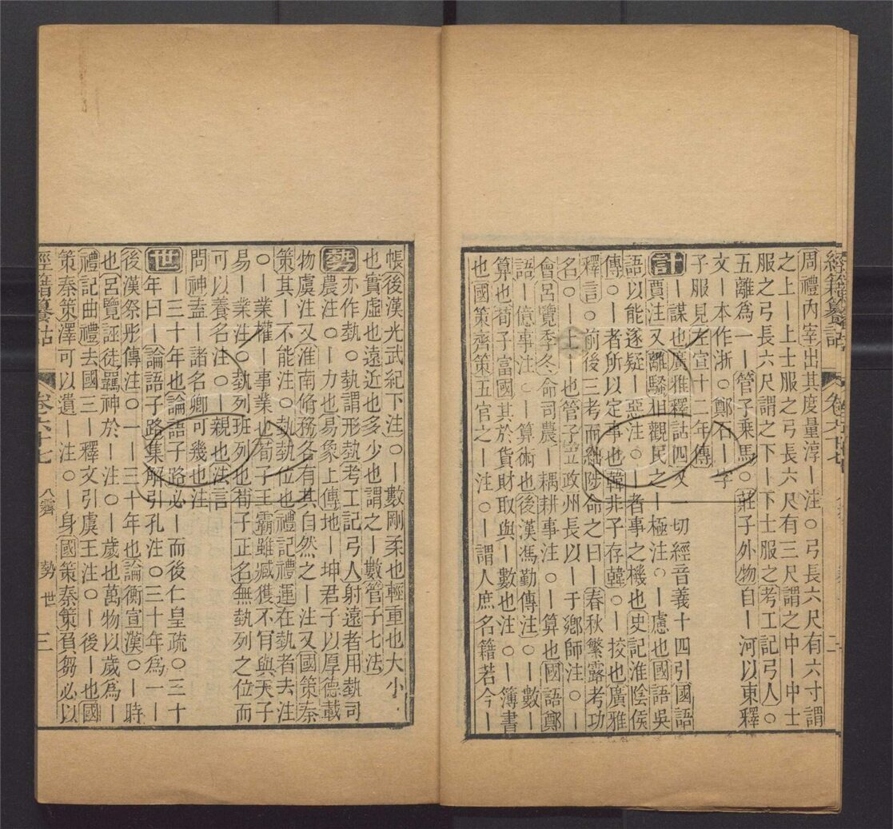 經籍籑詁 卷六十七
周禮內宰出其度量淳｜注○弓長六尺有六寸謂
之上｜上士服之弓長六尺有三尺謂之中｜中士
服之弓長六尺謂之下｜下士服之考工記弓人○
五離爲一｜管子乘馬○莊子外物自｜河以東釋
文｜本作浙○鄭石｜字
子服見左宣十二年傳
計｜謀也廣雅釋詁四又一切經音義十四引國語
賈注又離騷相觀民之｜極注○慮也國語吳
語以能遂疑｜惡注○｜者事之機也史記淮陰侯
傳○｜者所以定事也韓非子存韓○｜挍也廣雅
釋言○前後三考而絀陟命之曰｜春秋繁露考功
名○｜上｜也管子立政州長以｜于鄉師注○｜
會呂覽季冬命司農｜耦耕事注○｜算也國語鄭
語｜億事注○｜算術也後漢馮勤傳注○｜數｜
算也荀子富國其於貨財取與｜數也注○｜簿書
也國策齊策五官之｜注○｜謂人庶名籍若今｜
帳後漢光武紀下注○｜數剛柔也輕重也大小
也實虛也遠近也多少也謂之｜數管子七法
勢亦作埶○埶謂形埶考工記弓人射遠者用埶司
農注○｜力也易象上傳地｜坤君子以厚德載
物虞注又淮南脩務各有其自然之｜注又國策秦
策其｜不能注○埶埶位也禮記禮運在埶者去注
○｜業權｜事業也荀子王霸雖臧獲不肯與天子
易｜業注○埶列班列也荀子正名無埶列之位而
可以養名注○｜親也法言
問神盍｜諸名卿可幾也注
世｜三十年也論語子路必｜而後仁皇疏○三十
年曰｜論語子路集解引孔注○三十年爲一｜
後漢祭彤傳注○一｜三十年也論衡宣漢○｜時
也呂覽誣徒羈神於｜注○｜歲也萬物以歲爲｜
禮記曲禮去國三｜釋文引虞王注○｜後｜也國
策秦策澤可以遺｜注○｜身國策秦策負芻必以
經籍籑詁 卷六十七 八霽 勢 世 三